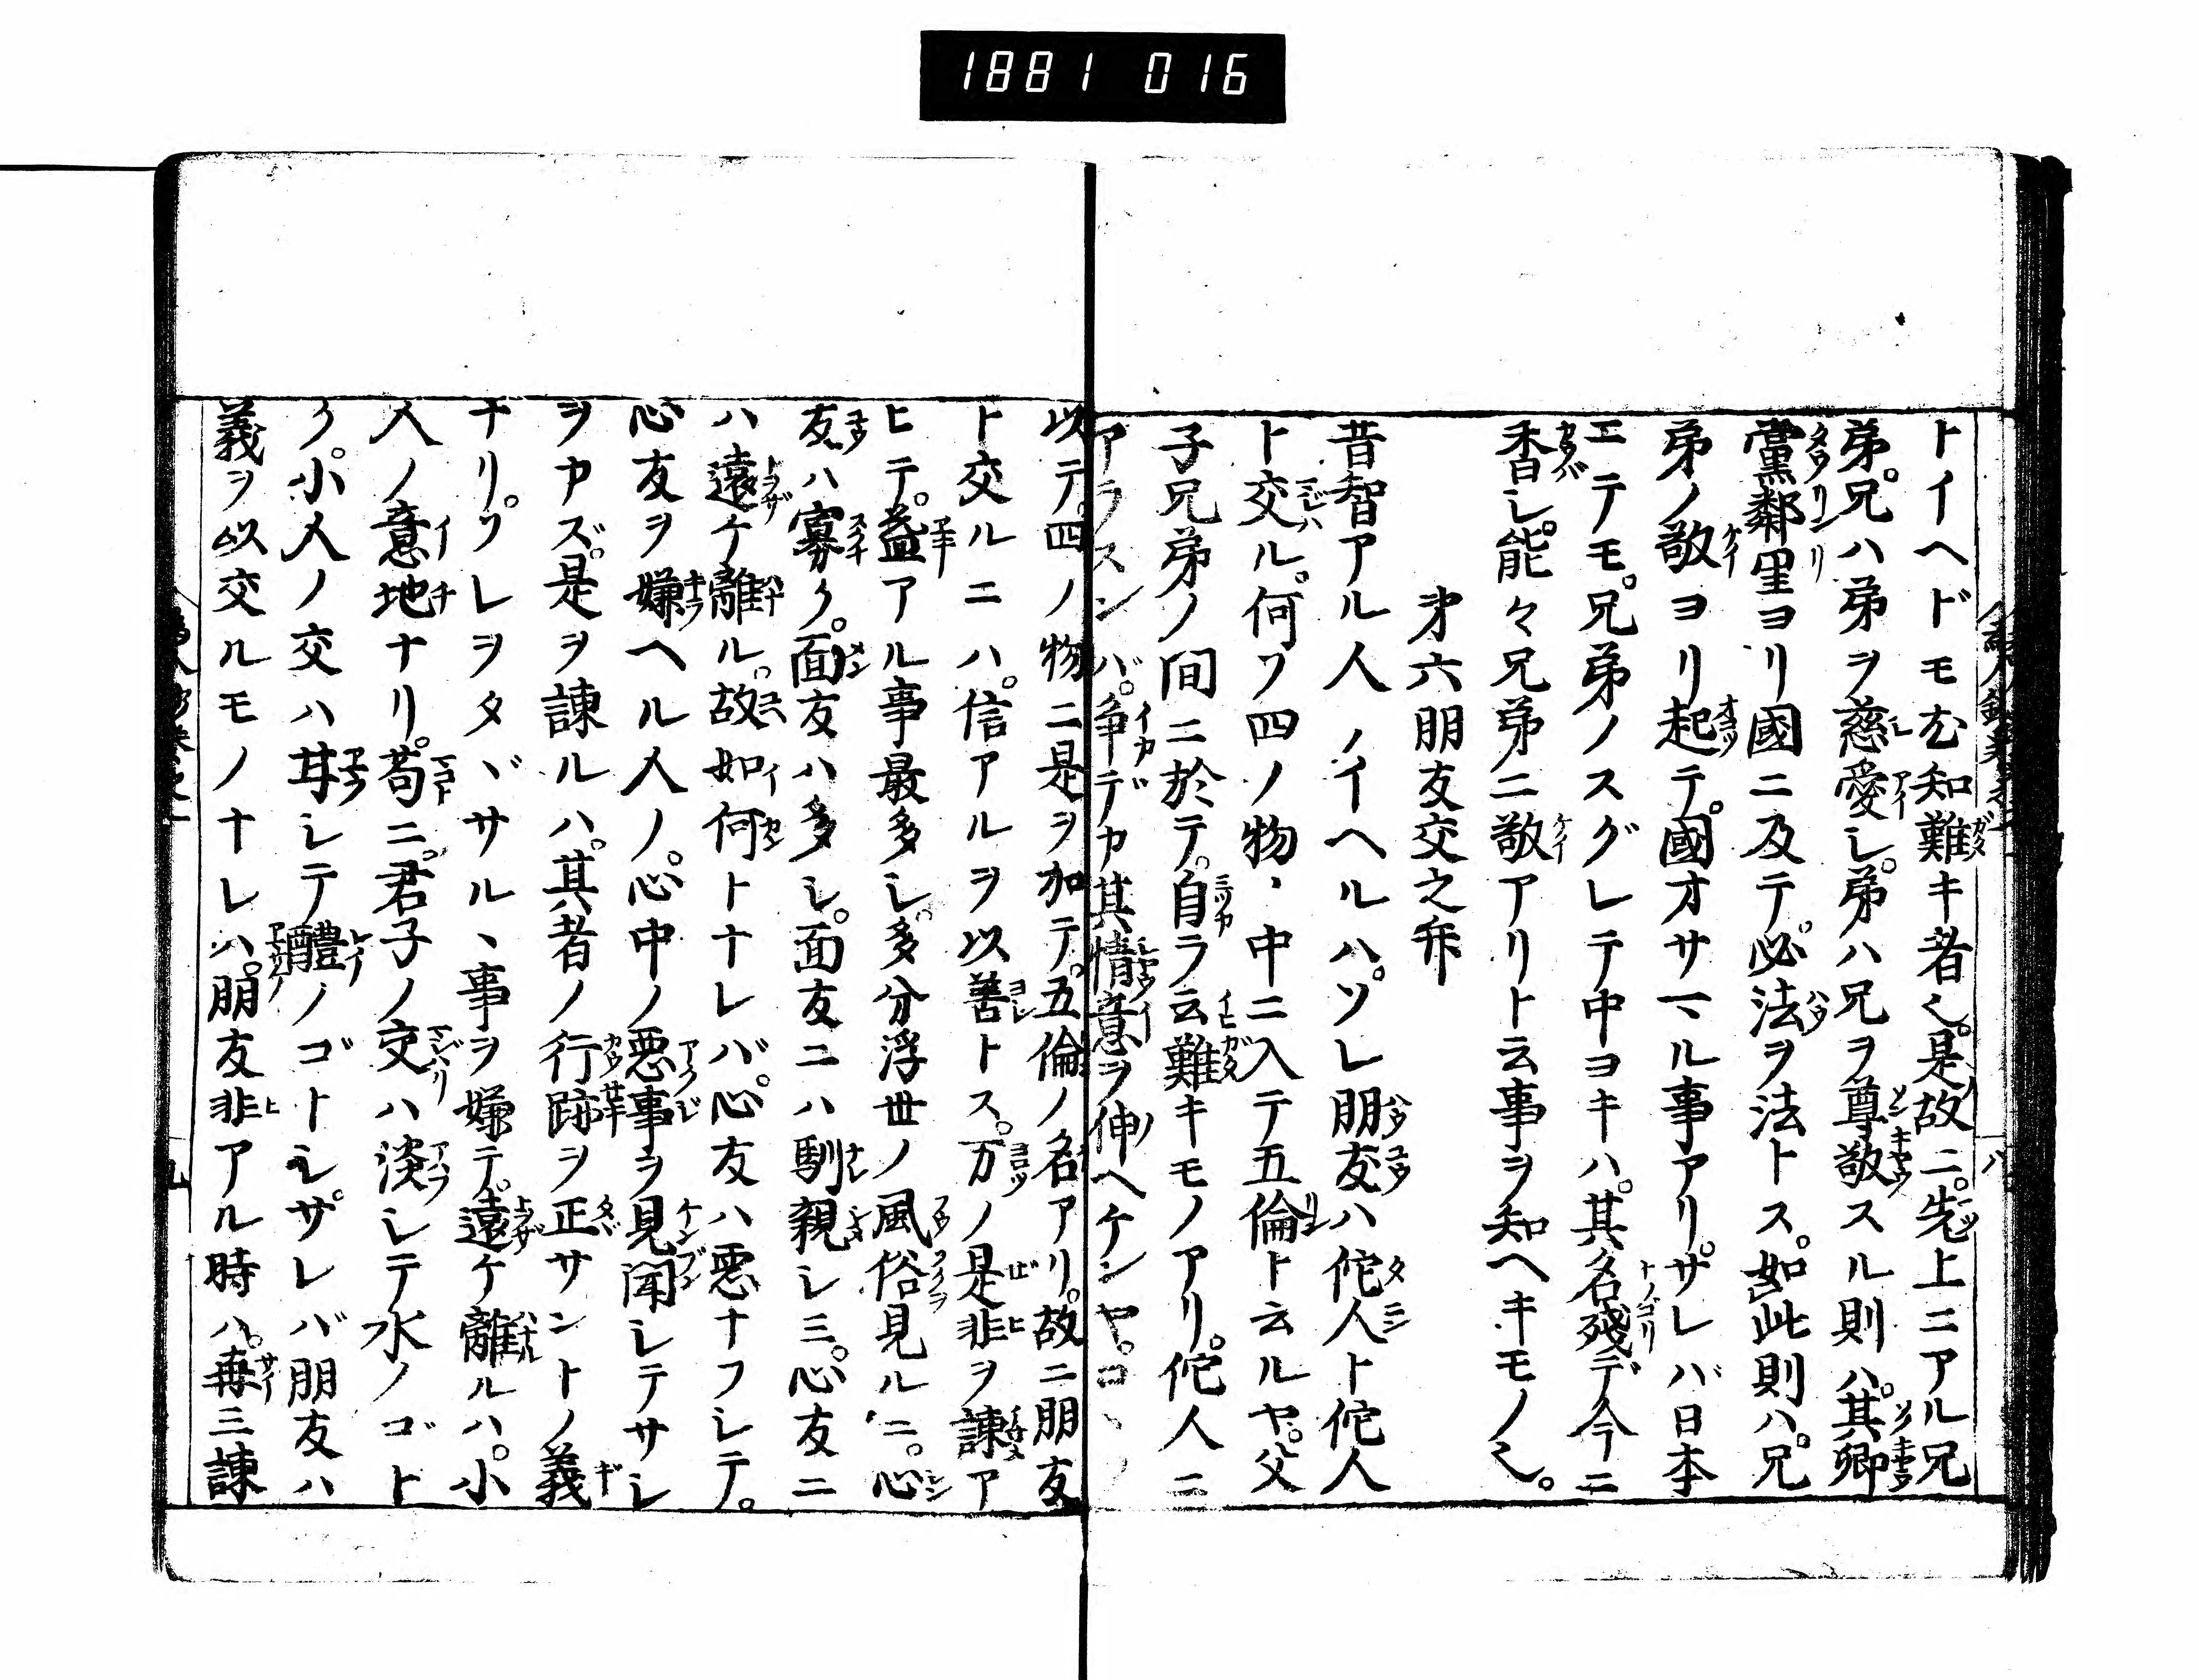 1881 016
トイヘドモ尤知難キ者也。是故ニ。先上ニアル兄
弟。兄ハ弟ヲ慈愛シ。弟ハ兄ヲ尊敬スル則ハ。其郷
黨鄰里ヨリ國ニ及テ。必法ヲ法トス。如此則ハ。兄
弟ノ敬ヨリ起テ。國オサマル事アリ。サレバ日本
ニテモ。兄弟ノスグレテ中ヨキハ。其名殘デ今ニ
香シ。能々兄弟ニ敬アリト云事ヲ知ヘキモノ也。
才六朋友交之弁
昔智アル人ノイヘルハ。ソレ朋友ハ佗人ト佗人
ト交ル。何ソ四ノ物ヽ中ニ入テ五倫ト云ルヤ。父
子兄弟ノ間ニ於テ。自ラ云難キモノアリ。佗人ニ
アラスンバ。争デカ其情意ヲ伸ヘケンヤ。コヽ
以テ。四ノ物ニ是ヲ加テ。五倫ノ名アリ。故ニ朋友
ト交ルニハ。信アルヲ以善トス。万ノ是非ヲ諌ア
ヒテ。益アル事最多シ。多分浮世ノ風俗見ルニ。心
友ハ寡ク。面友ハ多シ。面友ニハ馴親シミ。心友ニ
ハ遠ケ離ル。故如何トナレバ。心友ハ悪ナフシテ。
心友ヲ嫌ヘル人ノ。心中ノ悪事ヲ見聞シテサシ
ヲカズ。是ヲ諌ルハ。其者ノ行跡ヲ正サントノ義
ナリ。ワレヲタヾサルヽ事ヲ嫌テ。遠ケ離ルハ。小
人ノ意地ナリ。苟ニ。君子ノ交ハ淡シテ水ノゴト
ク。小人ノ交ハ甘シテ醴ノゴトシ。サレバ朋友ハ
義ヲ以交ルモノナレハ。朋友非アル時ハ。再三諌